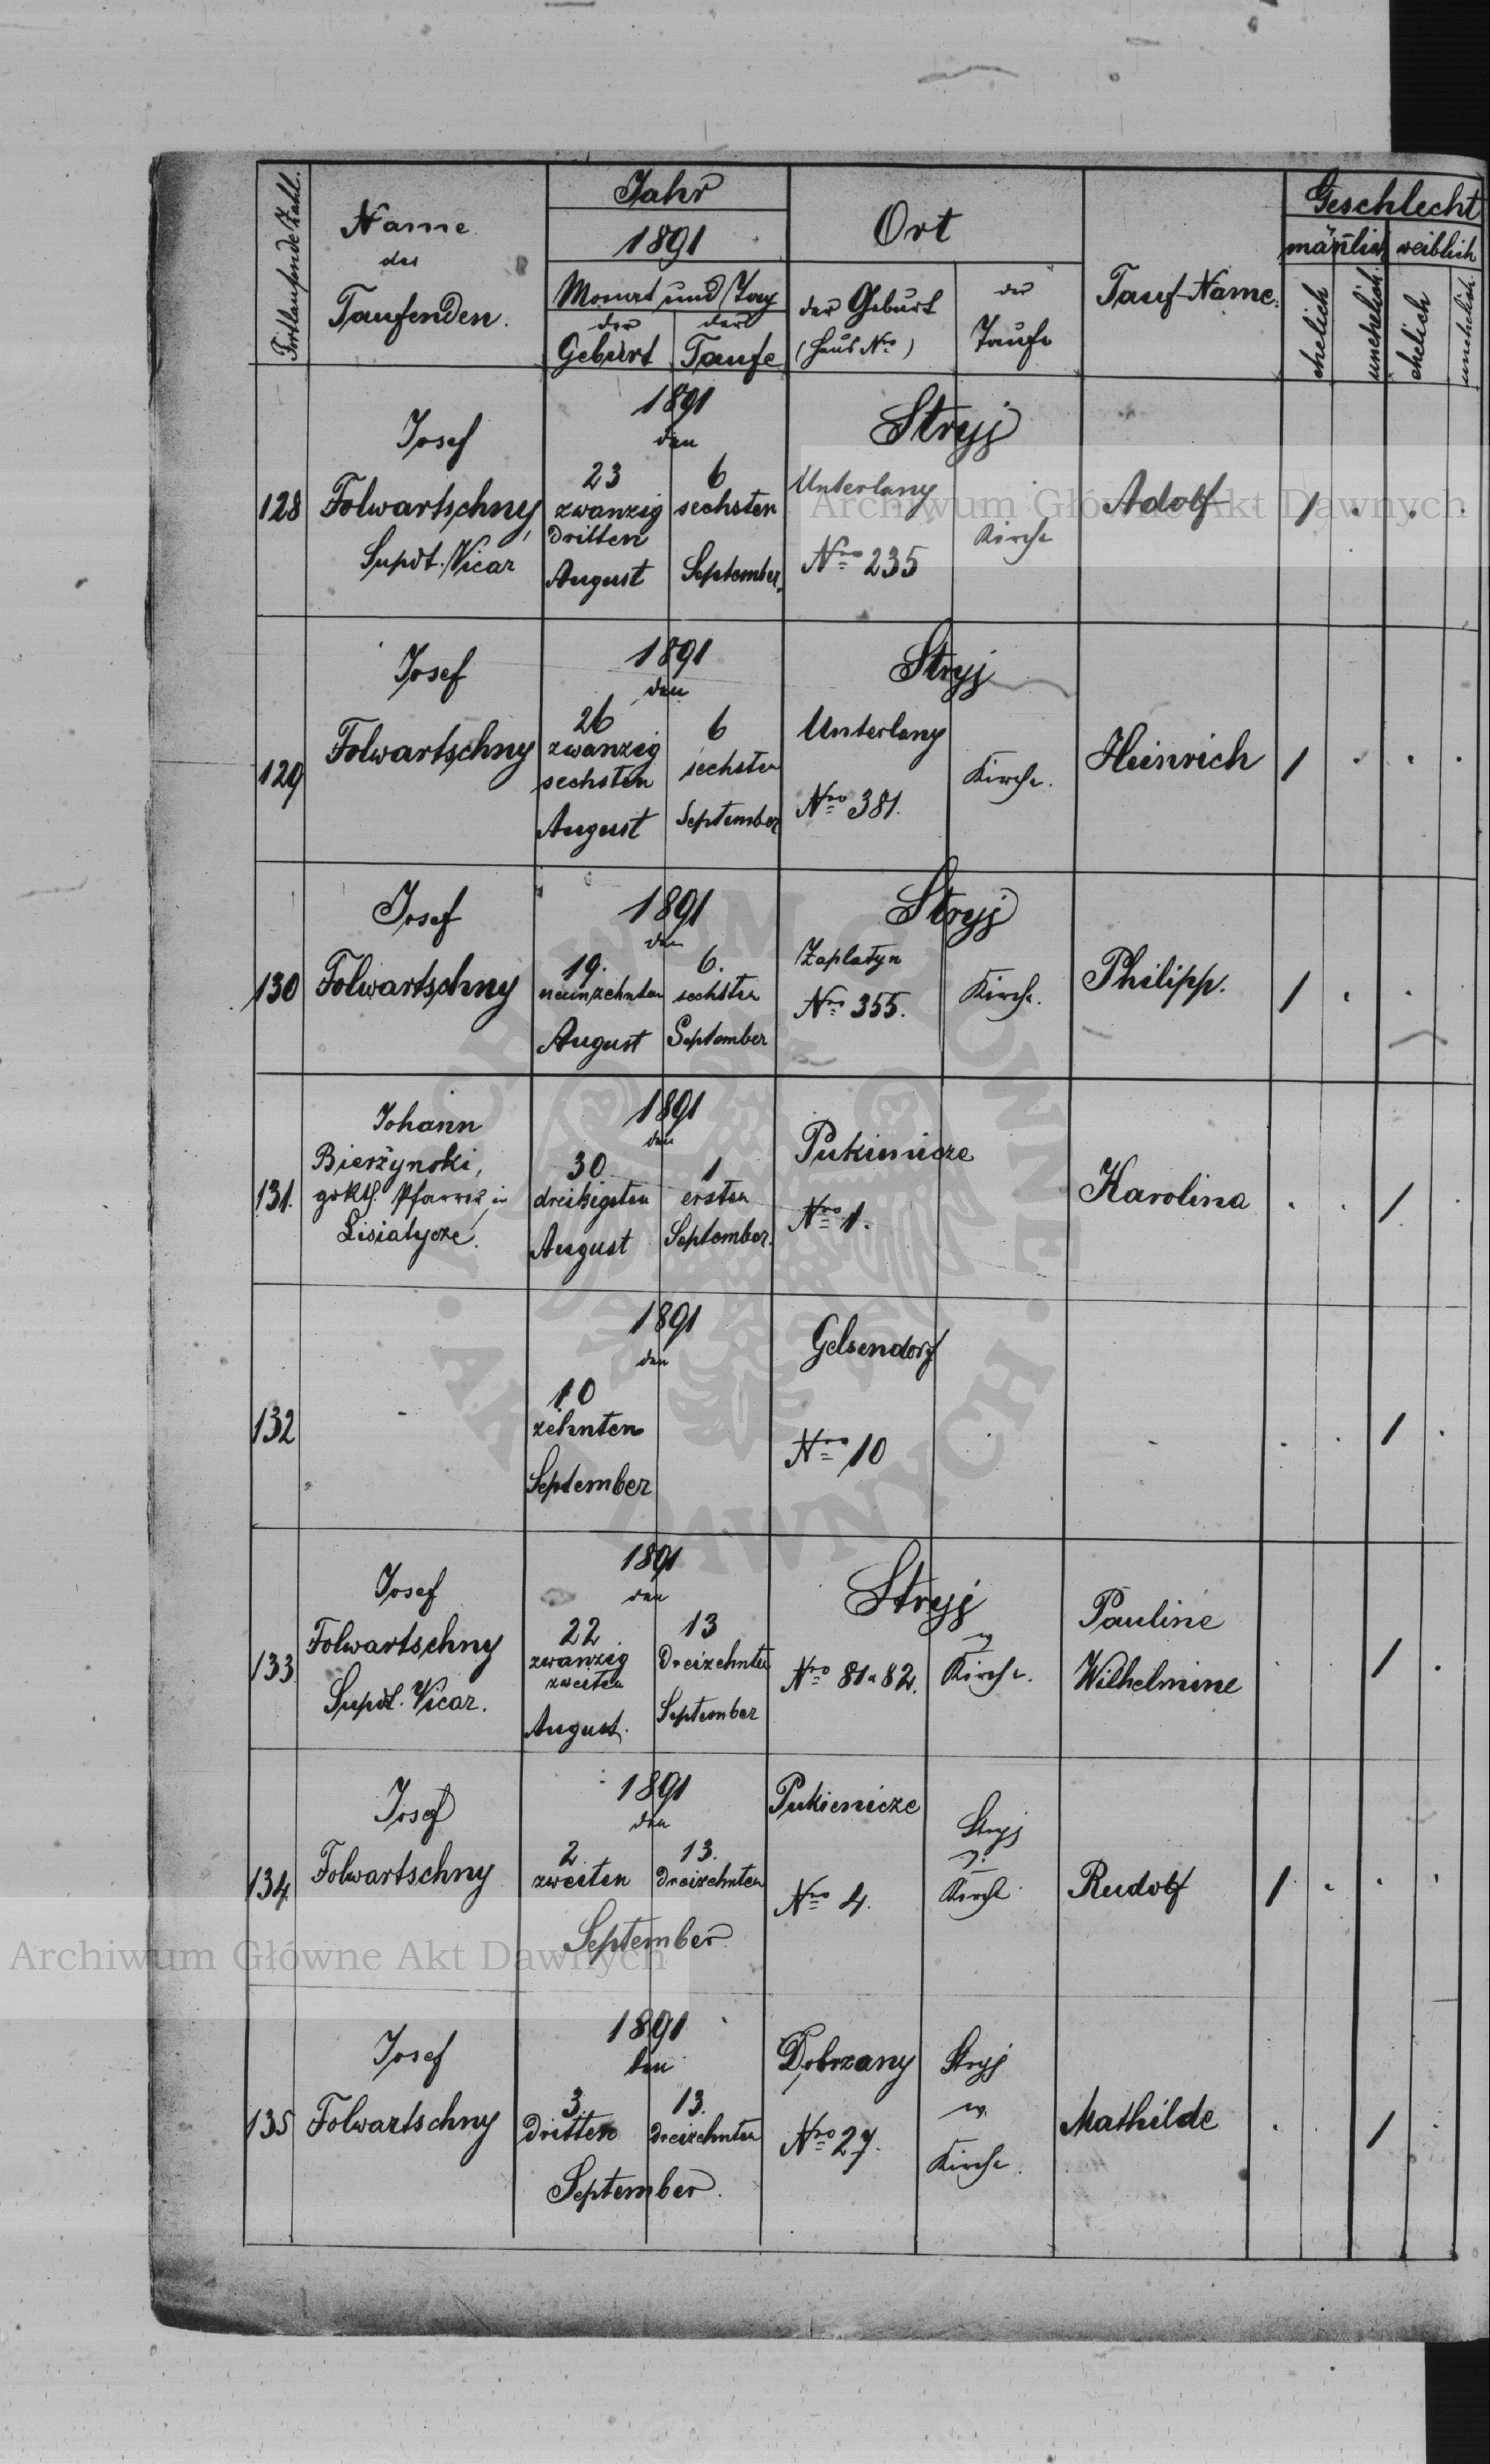 Fortlaufende Zahl.
Name
des
Taufenden.
Jahr
1891
Monat und Tag
der
Geburt
der
Taufe
Ort
der Geburt
(Haus Nro)
der
Taufe
Tauf-Name.
Geschlecht
mānlich
weiblich
ehelich
unehelich.
ehelich
unehelich.
128
Josef
Folwartschny,
Supdt. Vicar
1891
den
23
zwanzig
dritten
August
6
sechsten
September.
Stryj
Unterlany
Nro 235
Kirche
Adolf
1
129
Josef
Folwartschny
1891
den
26
zwanzig
sechsten
August
6
sechsten
September
Stryj
Unterlany
Nro 381.
Kirche.
Heinrich
1
130
Josef
Folwartschny
1891
den
19.
neunzehnten
August
6.
sechsten
September
Stryj
Zaplatyn
Nro 355.
Kirche.
Philipp.
1
131.
Johann
Bierżynski,
gr. kth. Pfarrer in
Lisiatycze.
1891
den
30
dreißigsten
August
1
ersten
September.
Pukienicze
Nro 1.
Karolina
1
132
1891
den
10
zehnten
September
Gelsendorf
Nro 10
1
133
Josef
Folwartschny
Supdt. Vicar.
1891
den
22
zwanzig
zweiten
August.
13
Dreizehnten
September
Stryj
Nro 81 a 82.
Kirche.
Pauline
Wilhelmine
1
134
Josef
Folwartschny
1891
den
2
zweiten
13.
dreizehnten
September
Pukienicze
Nro 4.
Stryj
Kirche
Rudolf
1
135
Josef
Folwartschny
1891
den
3.
dritten
13.
dreizehnten
September.
Dobrzany
Nro 27.
Stryj
Kirche.
Mathilde
1
Archiwum Główne Akt Dawnych
Archiwum Główne Akt Dawnych
ARCHIWUM GŁÓWNE
AKT DAWNYCH